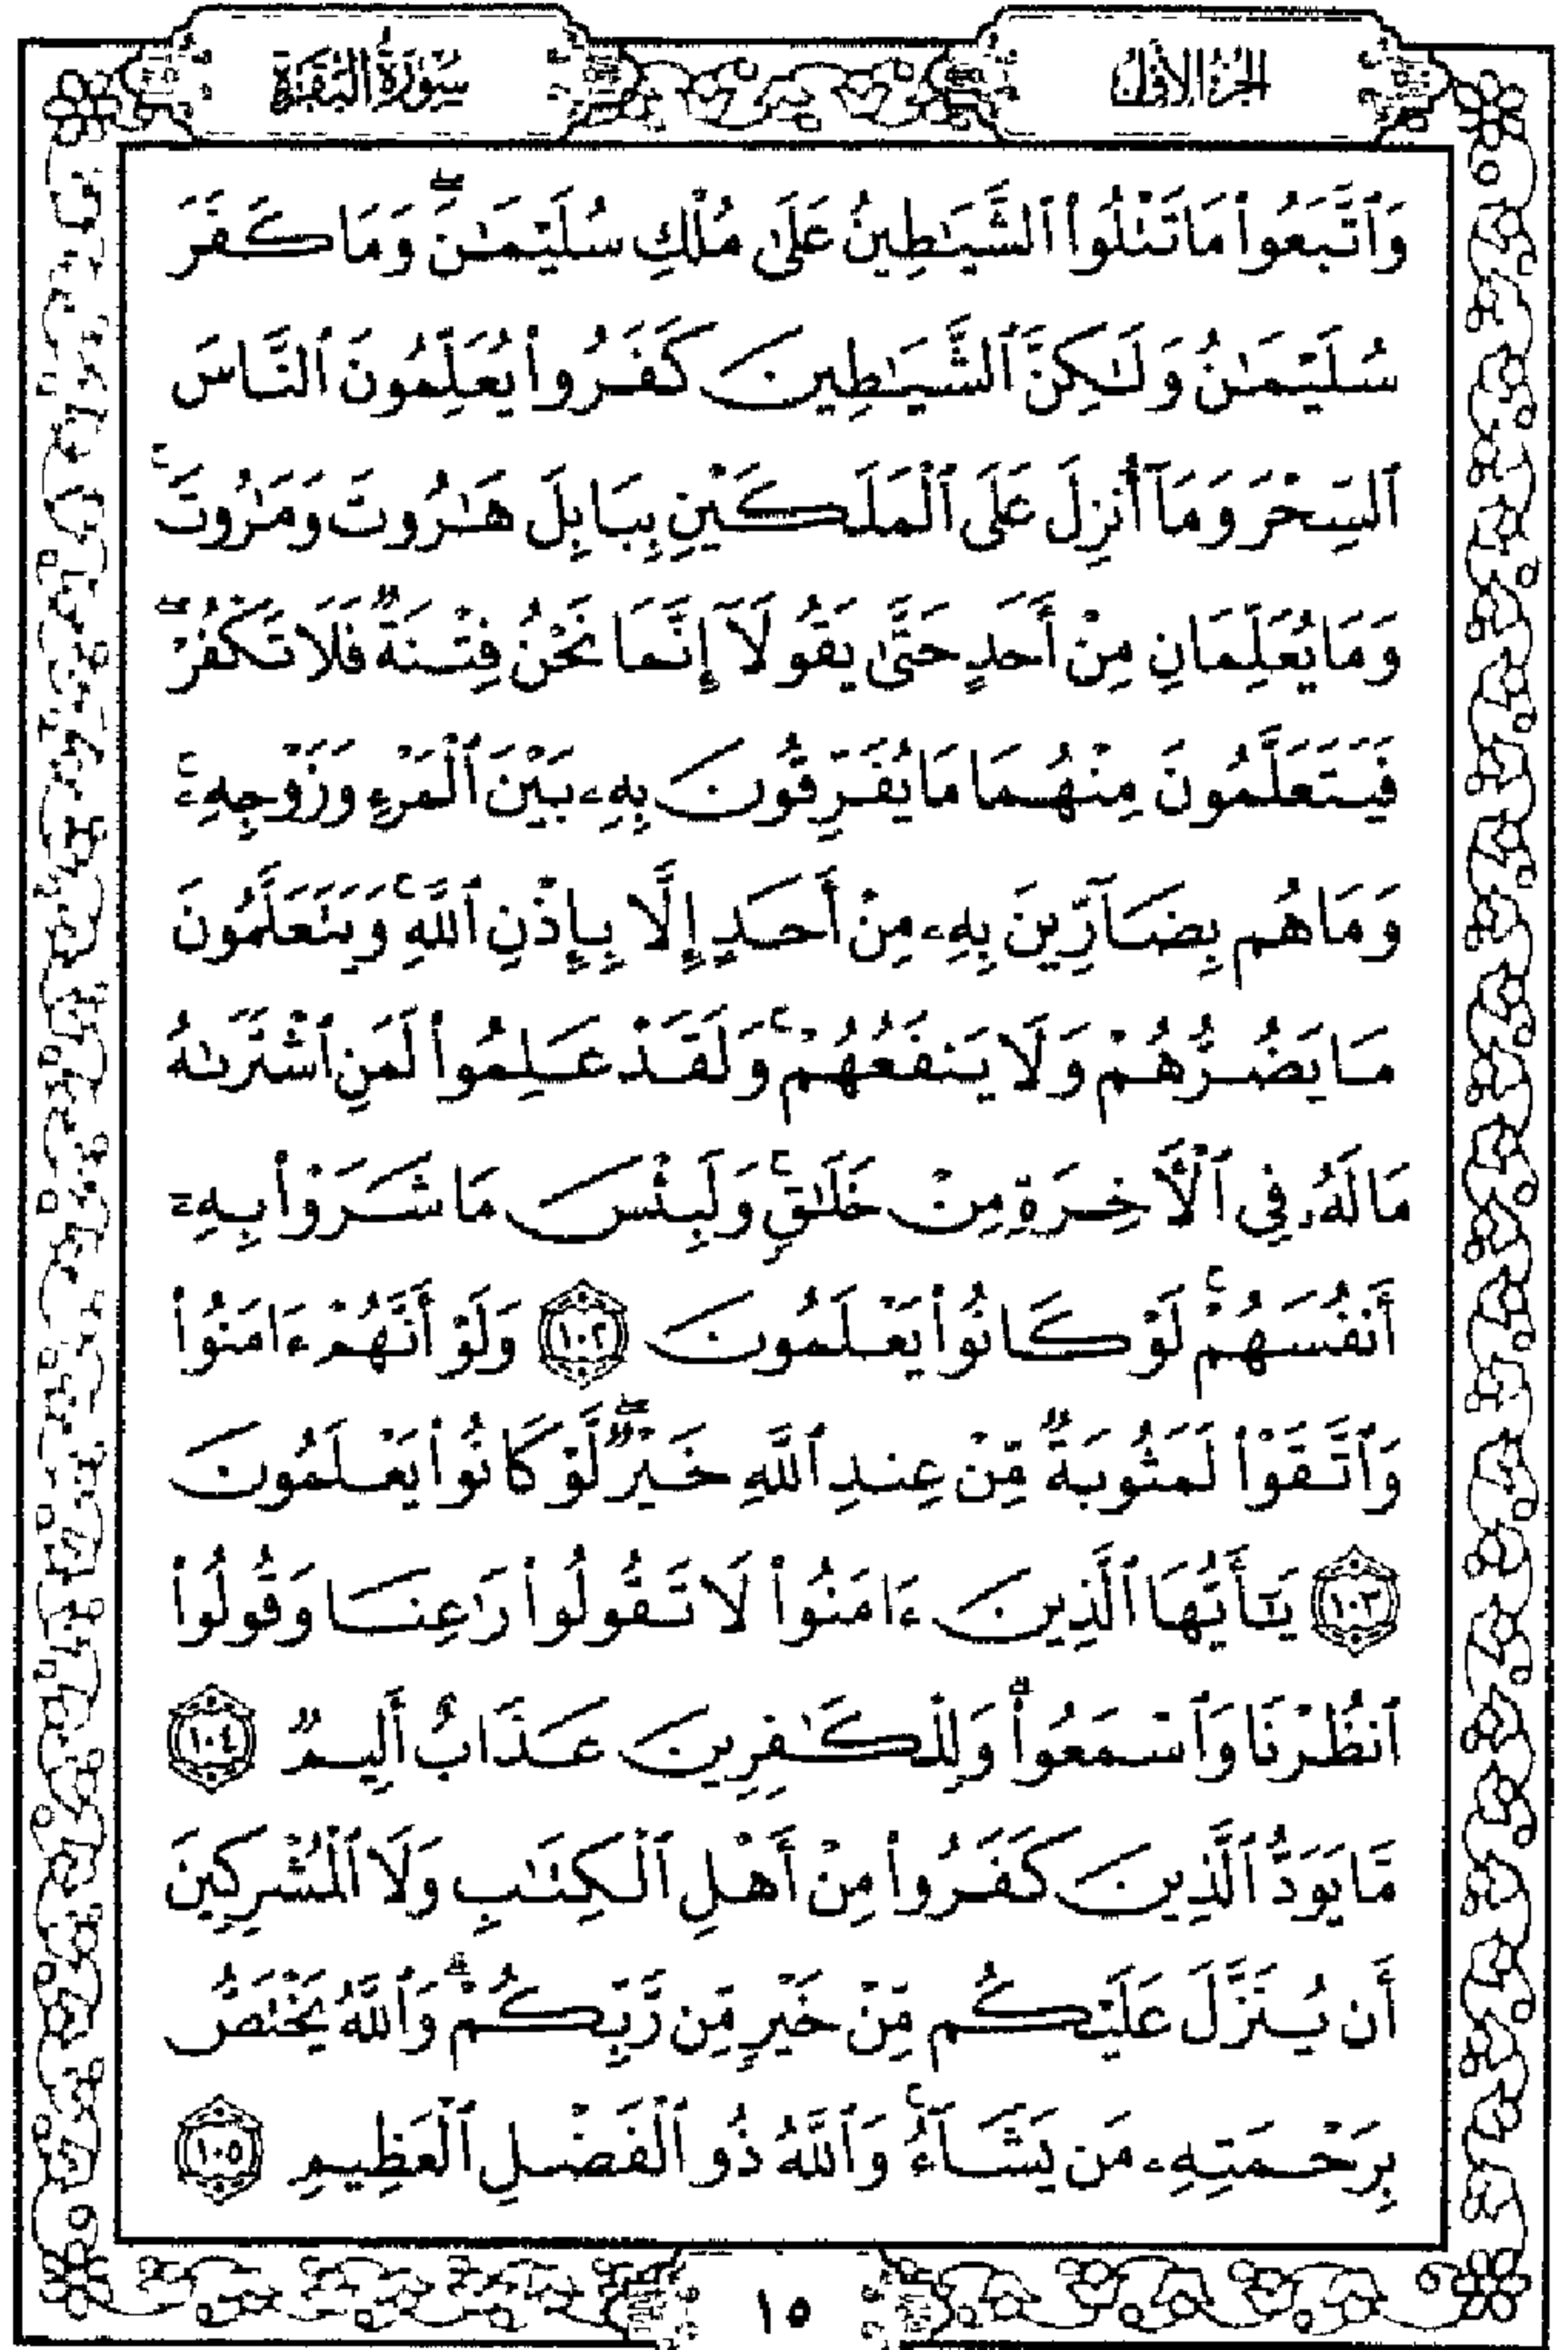 الجزء الأول
سورة البقرة
وَٱتَّبَعُوا۟ مَا تَتْلُوا۟ ٱلشَّيَـٰطِينُ عَلَىٰ مُلْكِ سُلَيْمَـٰنَ ۖ وَمَا كَفَرَ
سُلَيْمَـٰنُ وَلَـٰكِنَّ ٱلشَّيَـٰطِينَ كَفَرُوا۟ يُعَلِّمُونَ ٱلنَّاسَ
ٱلسِّحْرَ وَمَآ أُنزِلَ عَلَى ٱلْمَلَكَيْنِ بِبَابِلَ هَـٰرُوتَ وَمَـٰرُوتَ ۚ
وَمَا يُعَلِّمَانِ مِنْ أَحَدٍ حَتَّىٰ يَقُولَآ إِنَّمَا نَحْنُ فِتْنَةٌ فَلَا تَكْفُرْ ۖ
فَيَتَعَلَّمُونَ مِنْهُمَا مَا يُفَرِّقُونَ بِهِۦ بَيْنَ ٱلْمَرْءِ وَزَوْجِهِۦ ۚ
وَمَا هُم بِضَآرِّينَ بِهِۦ مِنْ أَحَدٍ إِلَّا بِإِذْنِ ٱللَّهِ ۚ وَيَتَعَلَّمُونَ
مَا يَضُرُّهُمْ وَلَا يَنفَعُهُمْ ۚ وَلَقَدْ عَلِمُوا۟ لَمَنِ ٱشْتَرَىٰهُ
مَا لَهُۥ فِى ٱلْـَٔاخِرَةِ مِنْ خَلَـٰقٍ ۚ وَلَبِئْسَ مَا شَرَوْا۟ بِهِۦٓ
أَنفُسَهُمْ ۚ لَوْ كَانُوا۟ يَعْلَمُونَ ١٠٢ وَلَوْ أَنَّهُمْ ءَامَنُوا۟
وَٱتَّقَوْا۟ لَمَثُوبَةٌ مِّنْ عِندِ ٱللَّهِ خَيْرٌ ۖ لَّوْ كَانُوا۟ يَعْلَمُونَ
١٠٣ يَـٰٓأَيُّهَا ٱلَّذِينَ ءَامَنُوا۟ لَا تَقُولُوا۟ رَٰعِنَا وَقُولُوا۟
ٱنظُرْنَا وَٱسْمَعُوا۟ ۗ وَلِلْكَـٰفِرِينَ عَذَابٌ أَلِيمٌ ١٠٤
مَّا يَوَدُّ ٱلَّذِينَ كَفَرُوا۟ مِنْ أَهْلِ ٱلْكِتَـٰبِ وَلَا ٱلْمُشْرِكِينَ
أَن يُنَزَّلَ عَلَيْكُم مِّنْ خَيْرٍ مِّن رَّبِّكُمْ ۗ وَٱللَّهُ يَخْتَصُّ
بِرَحْمَتِهِۦ مَن يَشَآءُ ۚ وَٱللَّهُ ذُو ٱلْفَضْلِ ٱلْعَظِيمِ ١٠٥
١٥